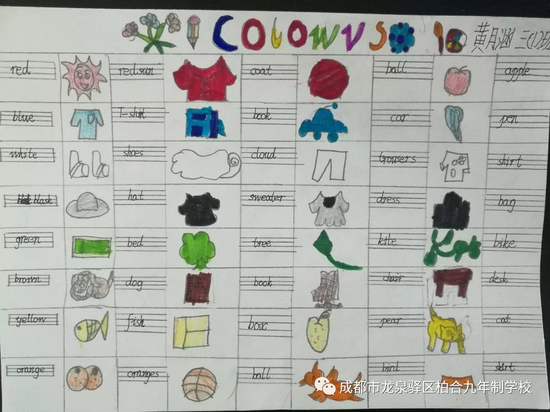 COloWVS
黄月涵 三(2)班
red red sun coat ball apple
blue T-shirt book car pen
white shoes cloud trousers shirt
black hat sweater dress bag
green bed tree kite bike
brown dog book chair desk
yellow fish box pear cat
orange oranges ball bird skirt
成都市龙泉驿区柏合九年制学校